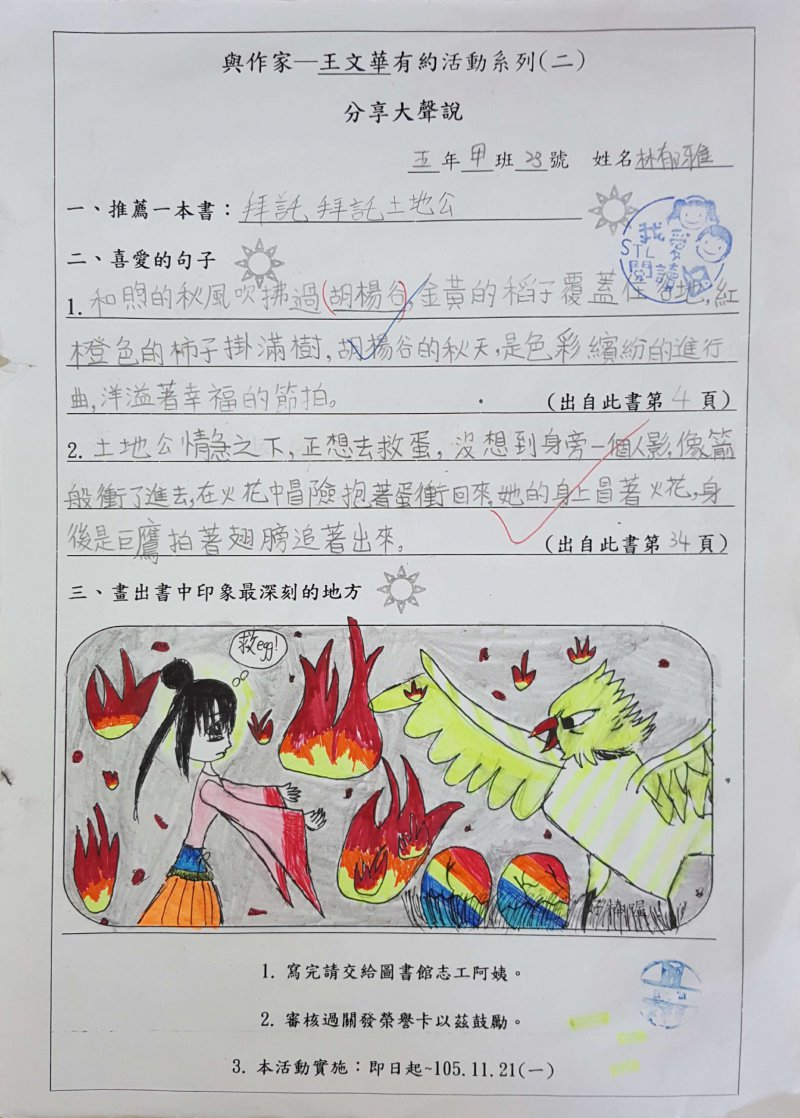 與作家─王文華有約活動系列(二)
分享大聲說
五年甲班23號 姓名林郁雅
一、推薦一本書：拜託拜託土地公
我愛
STL
閱讀
二、喜愛的句子
1. 和煦的秋風吹拂過(胡楊谷),金黃的稻子覆蓋住谷地,紅
橙色的柿子掛滿樹,胡楊谷的秋天,是色彩繽紛的進行
曲,洋溢著幸福的節拍。 (出自此書第4頁)
2. 土地公情急之下,正想去救蛋,沒想到身旁一個人影,像箭
般衝了進去,在火花中冒險抱著蛋衝回來,她的身上冒著火花,身
後是巨鷹拍著翅膀追著出來。 (出自此書第34頁)
三、畫出書中印象最深刻的地方
救egg!
1. 寫完請交給圖書館志工阿姨。
2. 審核過關發榮譽卡以茲鼓勵。
3. 本活動實施：即日起~105.11.21(一)